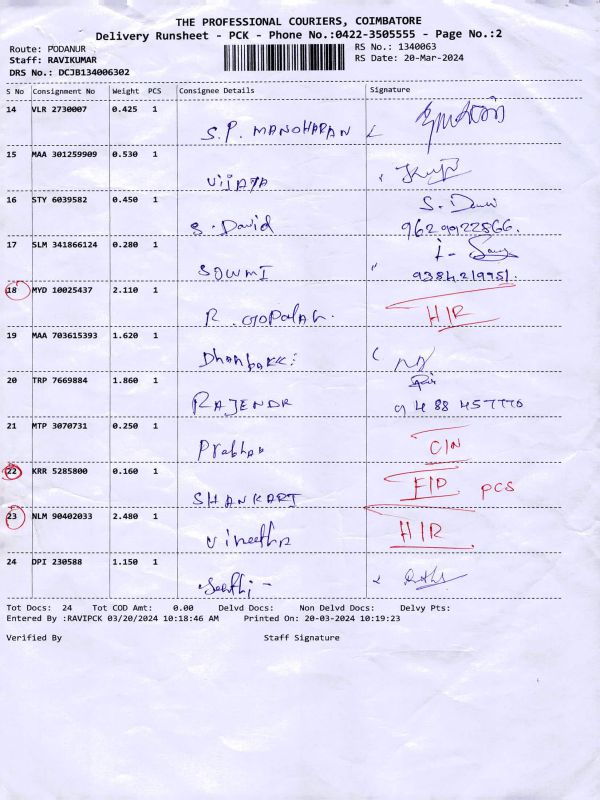 THE PROFESSIONAL COURIERS, COIMBATORE
Delivery Runsheet - PCK - Phone No.:0422-3505555 - Page No.:2
Route: PODANUR RS No.: 1340063
Staff: RAVIKUMAR RS Date: 20-Mar-2024
DRS No.: DCJB134006302
S No Consignment No Weight PCS Consignee Details Signature
14 VLR 2730007 0.425 1
S.P. MANOHARAN
15 MAA 301259909 0.530 1
VIJAYA
16 STY 6039582 0.450 1 S. Devi
S. David 9629922866.
17 SLM 341866124 0.280 1
SOWMI " 9384219951.
18 MYD 10025437 2.110 1
R. GOPALAK. H/R
19 MAA 703615393 1.620 1
20 TRP 7669884 1.860 1
RAJENDR 94 88 457770
21 MTP 3070731 0.250 1
Prabhak C/N
22 KRR 5285800 0.160 1
SHANKART F/D PCS
23 NLM 90402033 2.480 1
Vineetha H/R
24 DPI 230588 1.150 1
Tot Docs: 24 Tot COD Amt: 0.00 Delvd Docs: Non Delvd Docs: Delvy Pts:
Entered By :RAVIPCK 03/20/2024 10:18:46 AM Printed On: 20-03-2024 10:19:23
Verified By Staff Signature